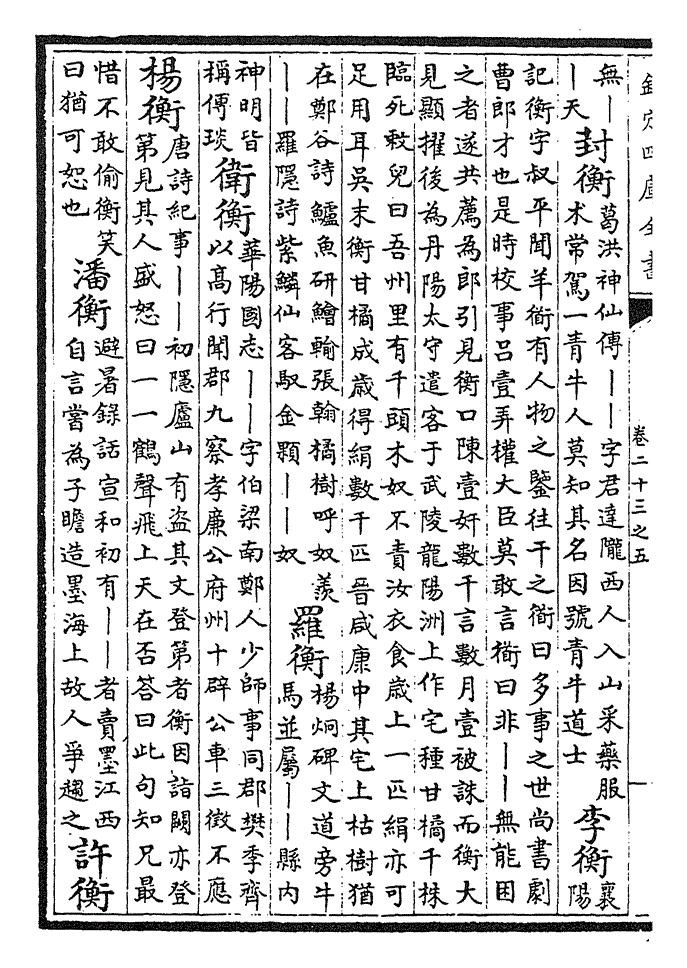 欽定四庫全書
卷二十三之五
無—
—天
封衡
葛洪神仙傳——字君達隴西人入山采藥服
术常駕一青牛人莫知其名因號青牛道士
李衡
襄
陽
記衡字叔平聞羊衜有人物之鑒往干之衜曰多事之世尚書劇
曹郎才也是時校事呂壹弄權大臣莫敢言衜曰非——無能困
之者遂共薦為郎引見衡口陳壹奸數千言數月壹被誅而衡大
見顯擢後為丹陽太守遣客于武陵龍陽洲上作宅種甘橘千株
臨死敕兒曰吾州里有千頭木奴不責汝衣食歲上一匹絹亦可
足用耳吳末衡甘橘成歲得絹數千匹晉咸康中其宅上枯樹猶
在鄭谷詩鱸魚研鱠輸張翰橘樹呼奴羨
——羅隱詩紫鱗仙客馭金顆——奴
羅衡
楊炯碑文道旁牛
馬並屬——縣內
神明皆
稱傅琰
衛衡
華陽國志——字伯梁南鄭人少師事同郡樊季齊
以高行聞郡九察孝廉公府州十辟公車三徵不應
楊衡
唐詩紀事——初隱廬山有盜其文登第者衡因詣闕亦登
第見其人盛怒曰一一鶴聲飛上天在否答曰此句知兄最
惜不敢偷衡笑
曰猶可恕也
潘衡
避暑錄話宣和初有——者賣墨江西
自言嘗為子瞻造墨海上故人爭趨之
許衡